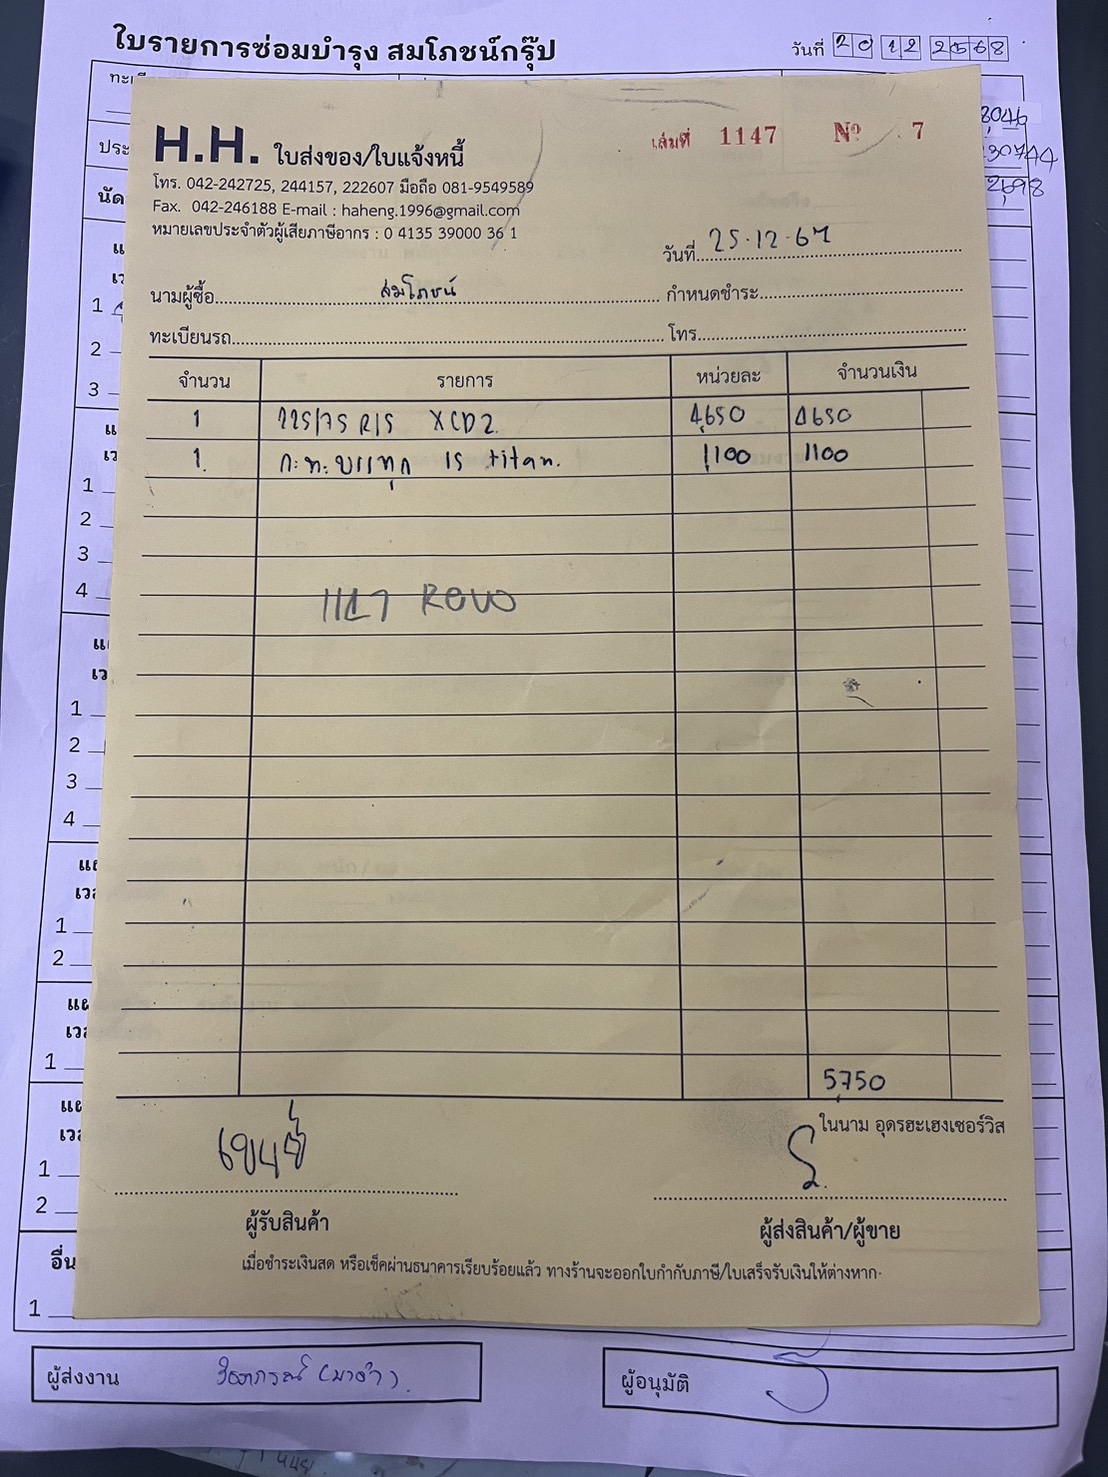 ใบรายการซ่อมบำรุง สมโภชน์กรุ๊ป
วันที่ 20 12 2568
H.H. ใบส่งของ/ใบแจ้งหนี้
เล่มที่ 1147 № 7
โทร. 042-242725, 244157, 222607 มือถือ 081-9549589
Fax. 042-246188 E-mail : haheng.1996@gmail.com
หมายเลขประจำตัวผู้เสียภาษีอากร : 0 4135 39000 36 1
วันที่ 25.12.67
นามผู้ซื้อ สมโภชน์ กำหนดชำระ
ทะเบียนรถ โทร.
จำนวน รายการ หน่วยละ จำนวนเงิน
1 225/75 R15 XCD2 4,650 4650
1. ก:ท:บรรทุก 15 titan. 1,100 1100
REVO
5,750
ในนาม อุดรฮะเฮงเซอร์วิส
ผู้รับสินค้า
ผู้ส่งสินค้า/ผู้ขาย
เมื่อชำระเงินสด หรือเช็คผ่านธนาคารเรียบร้อยแล้ว ทางร้านจะออกใบกำกับภาษี/ใบเสร็จรับเงินให้ต่างหาก
ผู้ส่งงาน
ผู้อนุมัติ